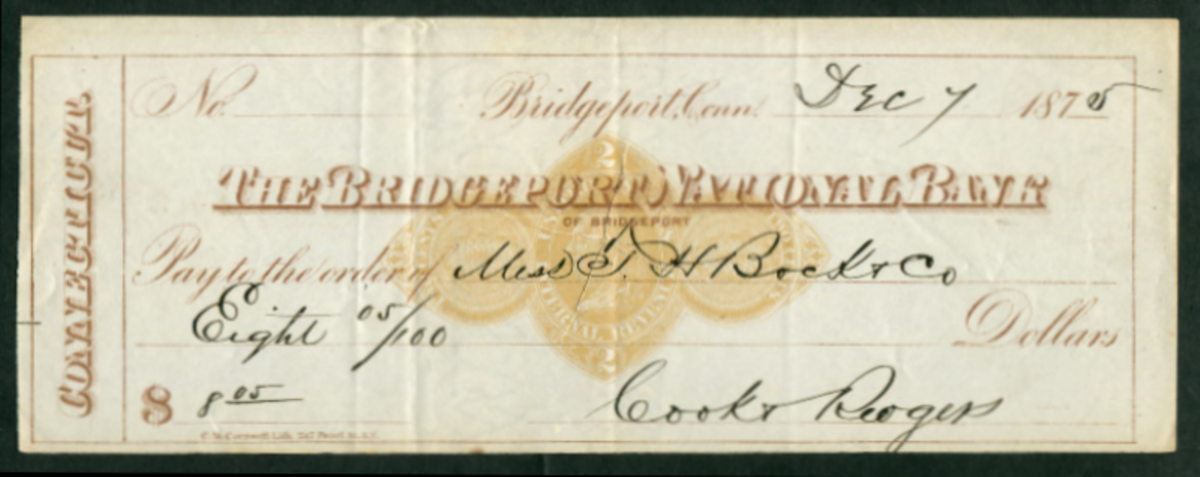 CONNECTICUT
No. Bridgeport, Conn. Dec 7 1875
THE BRIDGEPORT NATIONAL BANK
OF BRIDGEPORT
2
Pay to the order of Mess H Bock & Co
INTERNAL REVENUE
Eight 05/100 Dollars
2
$ 8 05 Cook & Rogers